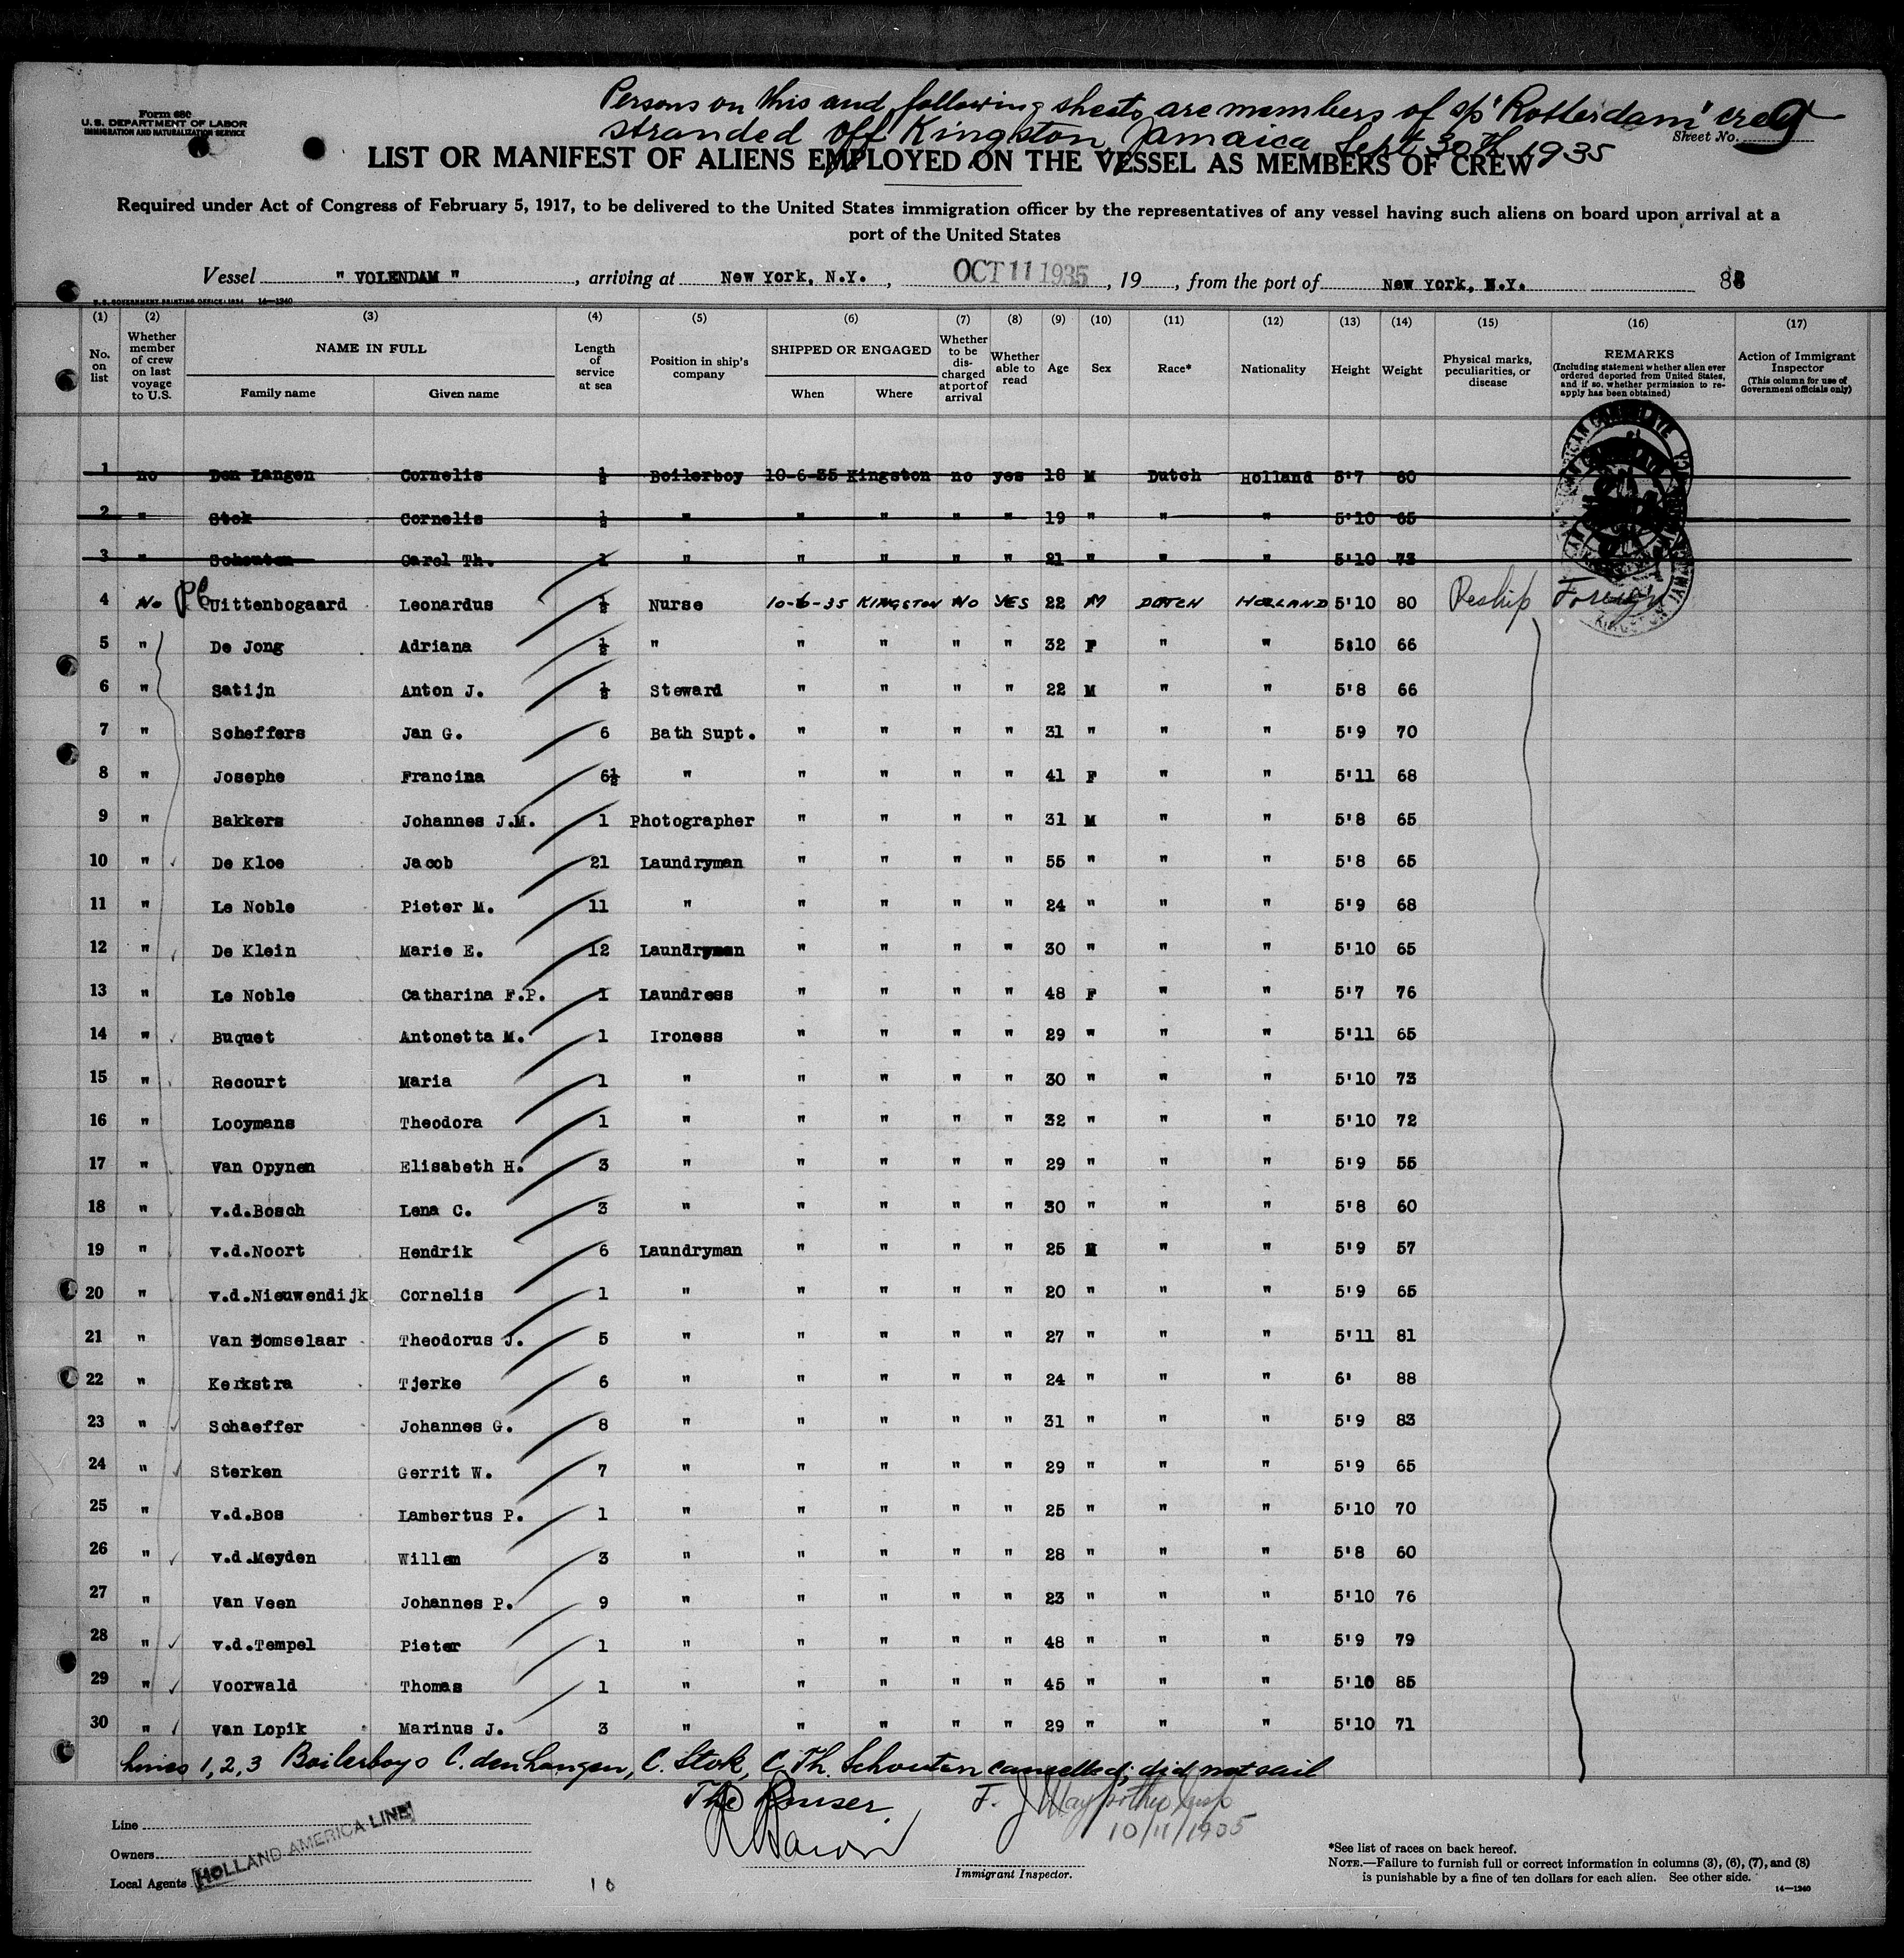 Persons on this and following sheets are members of s/s "Rotterdam" crew
stranded off Kingston, Jamaica Sept 30th 1935
Form 680
U.S. DEPARTMENT OF LABOR
IMMIGRATION AND NATURALIZATION SERVICE
Sheet No. 9
LIST OR MANIFEST OF ALIENS EMPLOYED ON THE VESSEL AS MEMBERS OF CREW
Required under Act of Congress of February 5, 1917, to be delivered to the United States immigration officer by the representatives of any vessel having such aliens on board upon arrival at a
port of the United States
Vessel " VOLENDAM " , arriving at New York, N.Y. , OCT 11 1935 , 19 , from the port of New York, N.Y.
U.S. GOVERNMENT PRINTING OFFICE: 1934 14—1240
(1) (2) (3) (4) (5) (6) (7) (8) (9) (10) (11) (12) (13) (14) (15) (16) (17)
No. on list Whether member of crew on last voyage to U.S. NAME IN FULL Family name Given name Length of service at sea Position in ship's company SHIPPED OR ENGAGED When Where Whether to be discharged at port of arrival Whether able to read Age Sex Race* Nationality Height Weight Physical marks, peculiarities, or disease REMARKS (Including statement whether alien ever ordered deported from United States, and if so, whether permission to reapply has been obtained) Action of Immigrant Inspector (This column for use of Government officials only)
1 no Den Langen Cornelis ½ Boilerboy 10-6-35 Kingston no yes 18 M Dutch Holland 5'7 60
2 " Stok Cornelis ½ " " " " " 19 " " " 5'10 65
3 " Schouten Carel Th. 1 " " " " " 21 " " " 5'10 73
4 No Uittenbogaard Leonardus ½ Nurse 10-6-35 KINGSTON NO YES 22 M DUTCH HOLLAND 5'10 80 Reship Foreign
5 " De Jong Adriana ½ " " " " " 32 F " " 5'10 66
6 " Satijn Anton J. ½ Steward " " " " 22 M " " 5'8 66
7 " Scheffers Jan G. 6 Bath Supt. " " " " 31 " " " 5'9 70
8 " Josephe Francina 6½ " " " " " 41 F " " 5'11 68
9 " Bakkers Johannes J.M. 1 Photographer " " " " 31 M " " 5'8 65
10 " De Kloe Jacob 21 Laundryman " " " " 55 " " " 5'8 65
11 " Le Noble Pieter M. 11 " " " " " 24 " " " 5'9 68
12 " De Klein Marie E. 12 Laundryman " " " " 30 " " " 5'10 65
13 " Le Noble Catharina F.P. 1 Laundress " " " " 48 F " " 5'7 76
14 " Buquet Antonetta M. 1 Ironess " " " " 29 " " " 5'11 65
15 " Recourt Maria 1 " " " " " 30 " " " 5'10 73
16 " Looymans Theodora 1 " " " " " 32 " " " 5'10 72
17 " Van Opynen Elisabeth H. 3 " " " " " 29 " " " 5'9 55
18 " v.d.Bosch Lena C. 3 " " " " " 30 " " " 5'8 60
19 " v.d.Noort Hendrik 6 Laundryman " " " " 25 M " " 5'9 57
20 " v.d.Nieuwendijk Cornelis 1 " " " " " 20 " " " 5'9 65
21 " Van Domselaar Theodorus J. 5 " " " " " 27 " " " 5'11 81
22 " Kerkstra Tjerke 6 " " " " " 24 " " " 6' 88
23 " Schaeffer Johannes G. 8 " " " " " 31 " " " 5'9 83
24 " Sterken Gerrit W. 7 " " " " " 29 " " " 5'9 65
25 " v.d.Bos Lambertus P. 1 " " " " " 25 " " " 5'10 70
26 " v.d.Meyden Willem 3 " " " " " 28 " " " 5'8 60
27 " Van Veen Johannes P. 9 " " " " " 23 " " " 5'10 76
28 " v.d.Tempel Pieter 1 " " " " " 48 " " " 5'9 79
29 " Voorwald Thomas 1 " " " " " 45 " " " 5'10 85
30 " Van Lopik Marinus J. 3 " " " " " 29 " " " 5'10 71
Lines 1, 2, 3 Boilerboys C. den Langen, C. Stok, C. Th. Schouten cancelled; did not sail
The Purser
10/11/1935
Line
Owners
Local Agents
HOLLAND AMERICA LINE
Immigrant Inspector.
*See list of races on back hereof.
NOTE.—Failure to furnish full or correct information in columns (3), (6), (7), and (8)
is punishable by a fine of ten dollars for each alien. See other side.
14—1240